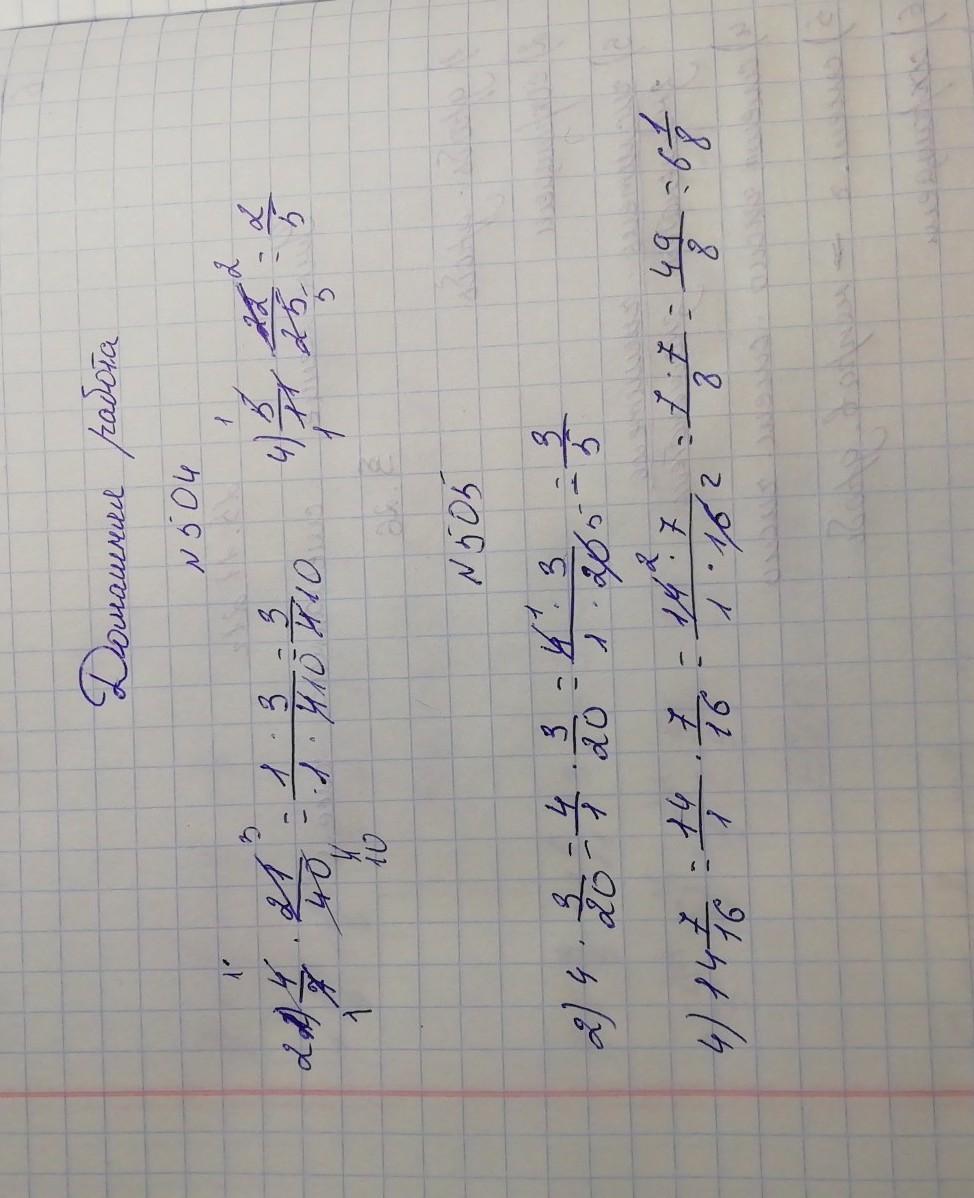 Домашняя работа
N 504
2) 4/7 · 21/40 = 1 · 3 / 1 · 10 = 3/10 4) 5/11 · 22/25 = 2/5
N 505
2) 4 · 3/20 = 4/1 · 3/20 = 4 · 3 / 1 · 20 = 3/5
4) 14 7/16 = 14/1 · 7/16 = 14 · 7 / 1 · 16 = 7 · 7 / 8 = 49/8 = 6 1/8